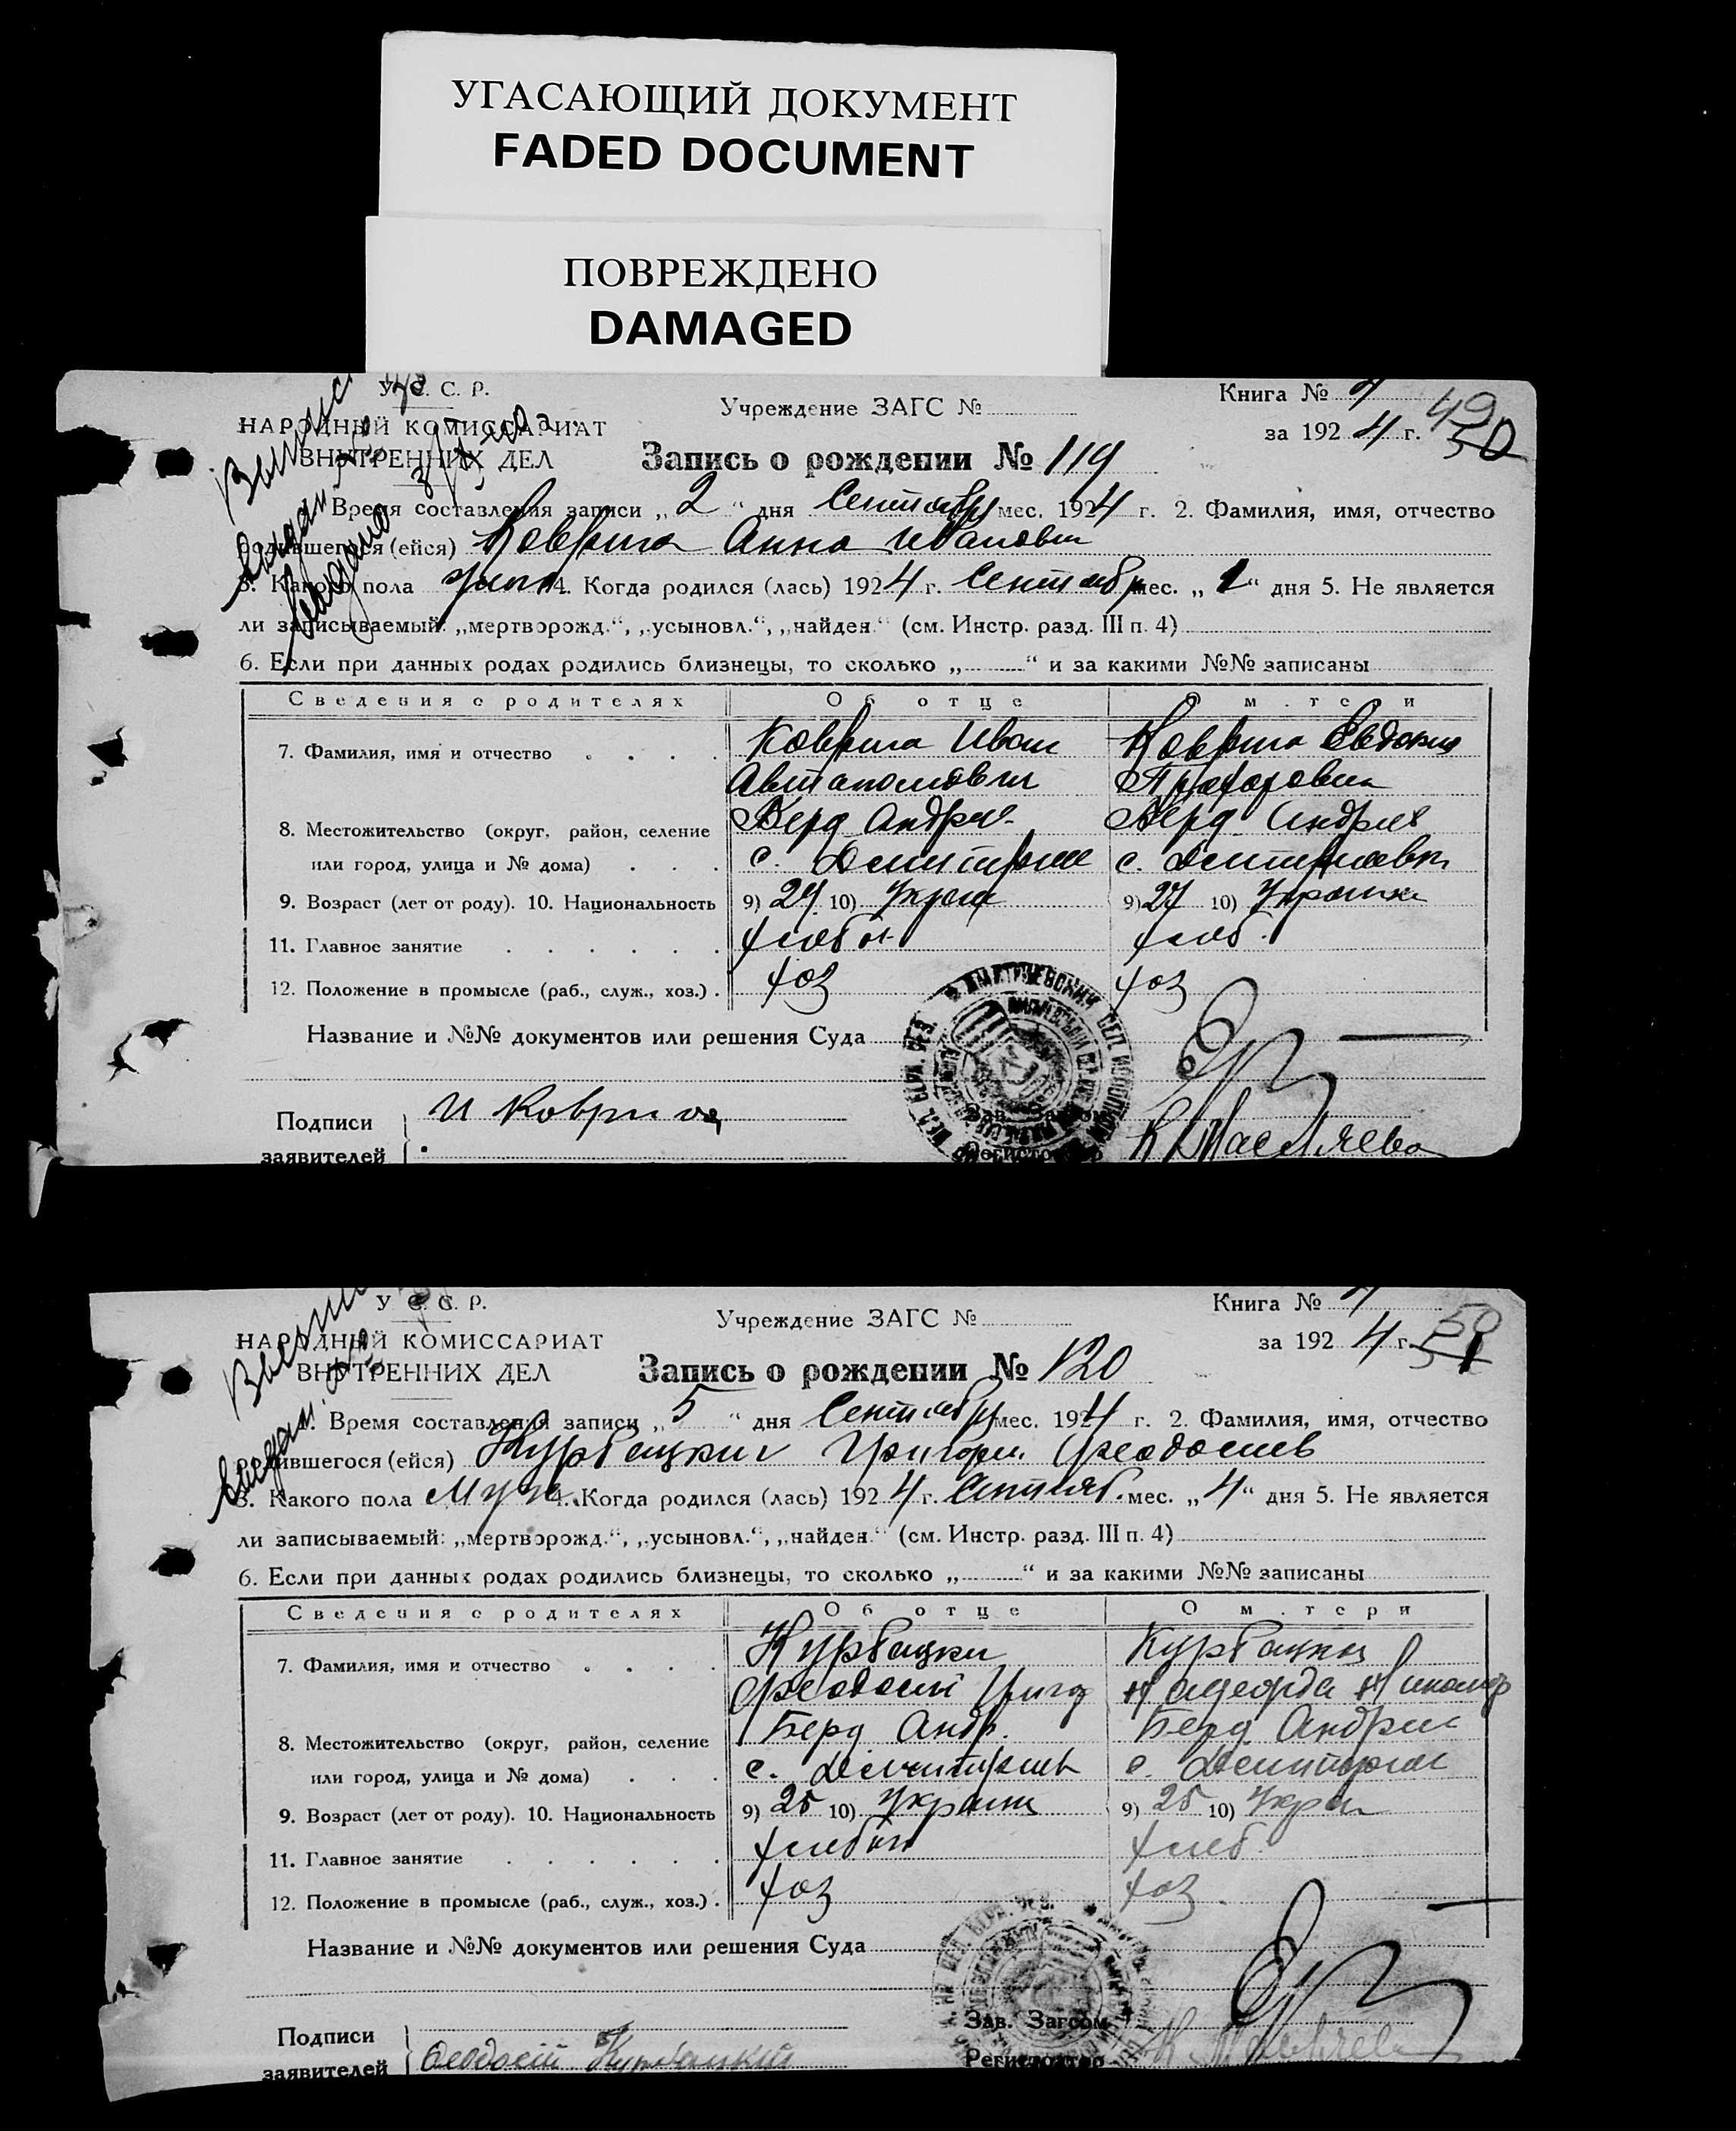 УГАСАЮЩИЙ ДОКУМЕНТ
FADED DOCUMENT
ПОВРЕЖДЕНО
DAMAGED
У. С. С. Р.
НАРОДНЫЙ КОМИССАРИАТ
ВНУТРЕННИХ ДЕЛ
Учреждение ЗАГС №
Книга №
за 1924 г.
49
50
Запись о рождении № 119
Время составления записи „2“ дня Сентябр мес. 1924 г. 2. Фамилия, имя, отчество
родившегося (ейся) Коврига Анна Ивановн
3. Какого пола 4. Когда родился (лась) 1924 г. Сентябр мес. „1“ дня 5. Не является
ли записываемый: „мертворожд.“, „усыновл.“, „найден.“ (см. Инстр. разд. III п. 4)
6. Если при данных родах родились близнецы, то сколько „ “ и за какими №№ записаны
Сведения о родителях Об отце О м.тери
7. Фамилия, имя и отчество Коврига Иван Коврига Евдокия
8. Местожительство (округ, район, селение Берд Андре Берд Андрие
или город, улица и № дома) с. Дмитрие с. Дмитриевк
9. Возраст (лет от роду). 10. Национальность 9) 27 10) Украи 9) 27 10) Украинк
11. Главное занятие хлебо хлеб.
12. Положение в промысле (раб., служ., хоз.) хоз хоз
Название и №№ документов или решения Суда
Подписи И Коврига
заявителей
Зав. Загсом
Регистратор
У. С. С. Р.
НАРОДНЫЙ КОМИССАРИАТ
ВНУТРЕННИХ ДЕЛ
Учреждение ЗАГС №
Книга №
за 1924 г.
50
Запись о рождении № 120
Время составления записи „5“ дня Сентябр мес. 1924 г. 2. Фамилия, имя, отчество
родившегося (ейся) Курбацкий Григори Феодосиев
3. Какого пола Муж 4. Когда родился (лась) 1924 г. Сентяб. мес. „4“ дня 5. Не является
ли записываемый: „мертворожд.“, „усыновл.“, „найден.“ (см. Инстр. разд. III п. 4)
6. Если при данных родах родились близнецы, то сколько „ “ и за какими №№ записаны
Сведения о родителях Об отце О м.тери
7. Фамилия, имя и отчество Курбацки Курбацка
Феодосий Григ
8. Местожительство (округ, район, селение Берд Андр. Берд Андрие
или город, улица и № дома) с. Дмитриев с. Дмитрие
9. Возраст (лет от роду). 10. Национальность 9) 25 10) Украин 9) 25 10) Укра
11. Главное занятие хлебоп хлеб.
12. Положение в промысле (раб., служ., хоз.) хоз хоз.
Название и №№ документов или решения Суда
Подписи
заявителей Феодосій Курбацкій
Зав. Загсом
Регистратор